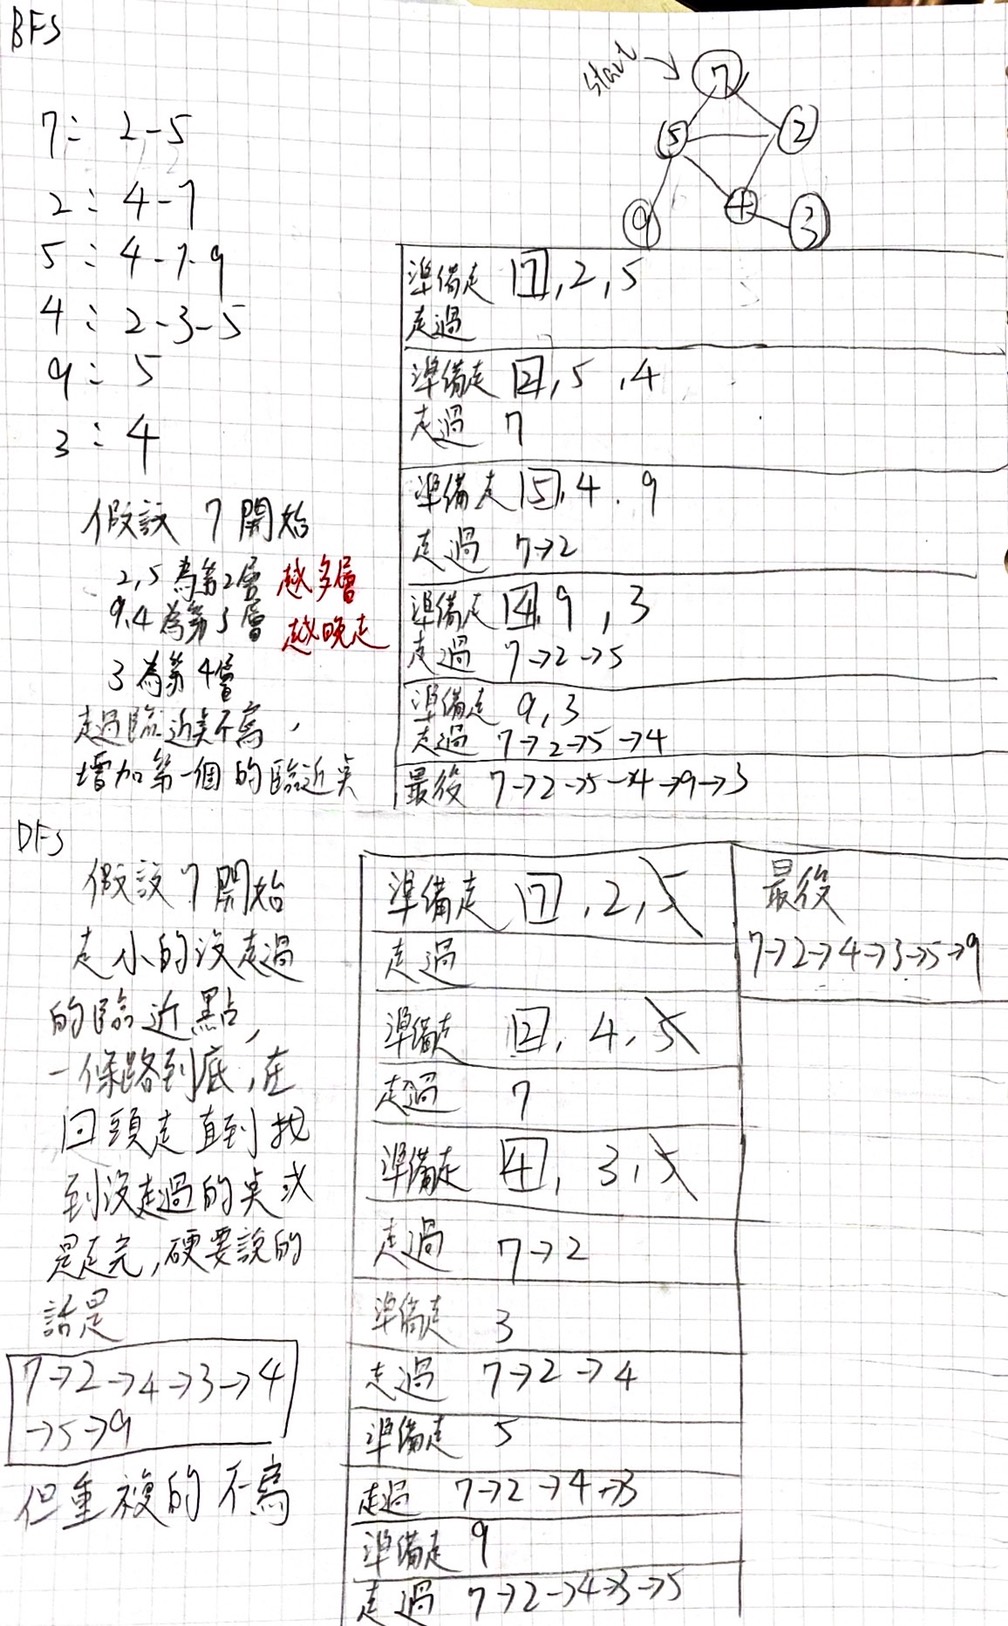 BFS
start
7
5
2
9
4
3
7: 2-5
2: 4-7
5: 4-7-9
4: 2-3-5
9: 5
3: 4
假設 7 開始
2,5 為第2層 越多層
9.4 為第3層 越晚走
3 為第4層
走過臨近點不寫,
增加第一個的臨近點
準備走 7,2,5
走過
準備走 2,5,4
走過 7
準備走 5,4.9
走過 7→2
準備走 4,9,3
走過 7→2→5
準備走 9,3
走過 7→2→5→4
最後 7→2→5→4→9→3
DFS
假設 7 開始
走小的沒走過
的臨近點,
一條路到底,在
回頭走直到找
到沒走過的點或
是走完,硬要說的
話是
7→2→4→3→4
→5→9
但重複的不寫
準備走 7,2,5
走過
準備走 2,4,5
走過 7
準備走 4,3,5
走過 7→2
準備走 3
走過 7→2→4
準備走 5
走過 7→2→4→3
準備走 9
走過 7→2→4→3→5
最後
7→2→4→3→5→9